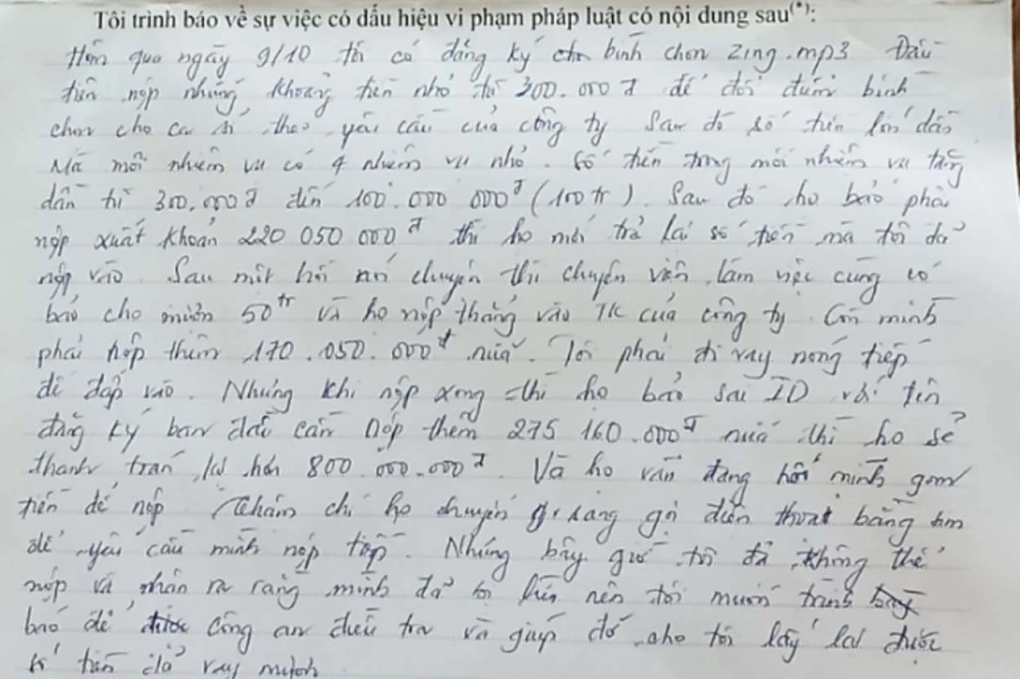 Tôi trình báo về sự việc có dấu hiệu vi phạm pháp luật có nội dung sau(*):
Hôm qua ngày 9/10 tôi có đăng ký bình chọn Zing.mp3 Đầu
tiên nộp những khoảng tiền nhỏ từ 300.000đ để đổi điểm bình
chọn cho ca sĩ theo yêu cầu của công ty Sau đó số tiền lớn dần
Mà mỗi nhiệm vụ có 4 nhiệm vụ nhỏ. Số tiền trong mỗi nhiệm vụ tăng
dần từ 300.000đ đến 100.000 000đ (100tr). Sau đó họ bảo phải
nộp xuất khoản 220 050 000đ thì họ mới trả lại số tiền mà tôi đã
nộp vào. Sau một hồi nói chuyện thì chuyên viên làm việc cùng có
bảo cho mượn 50tr và họ nộp thẳng vào TK của công ty. Còn mình
phải nộp thêm 170.050.000đ nữa. Tôi phải đi vay nóng tiếp
để đắp vào. Nhưng khi nộp xong thì họ bảo sai ID với tên
đăng ký ban đầu cần nộp thêm 275 160.000đ nữa thì họ sẽ
thanh toán lại hơn 800.000.000đ. Và họ vẫn đang hối mình gom
tiền để nộp. Thậm chí họ chuyển sang gọi điện thoại bằng
để yêu cầu mình nộp tiếp. Nhưng bây giờ tôi đã không thể
nộp và nhận ra rằng mình đã bị lừa nên tôi muốn trình
báo để được công an điều tra và giúp đỡ cho tôi lấy lại được
số tiền đã vay mượn